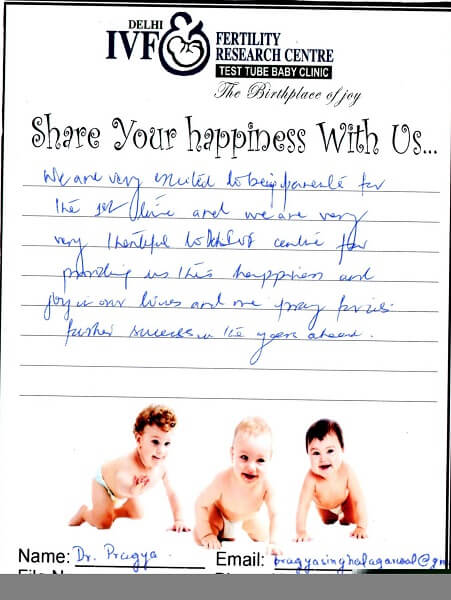 DELHI
IVF
FERTILITY
RESEARCH CENTRE
TEST TUBE BABY CLINIC
The Birthplace of joy
Share Your happiness With Us...
We are very excited to being parents for
the 1st time and we are very
very thankful to Delhi IVF centre for
providing us this happiness and
joy in our lives and we pray for its
further success in the years ahead.
Name: Dr. Pragya
Email: pragyasinghalagarwal@gm